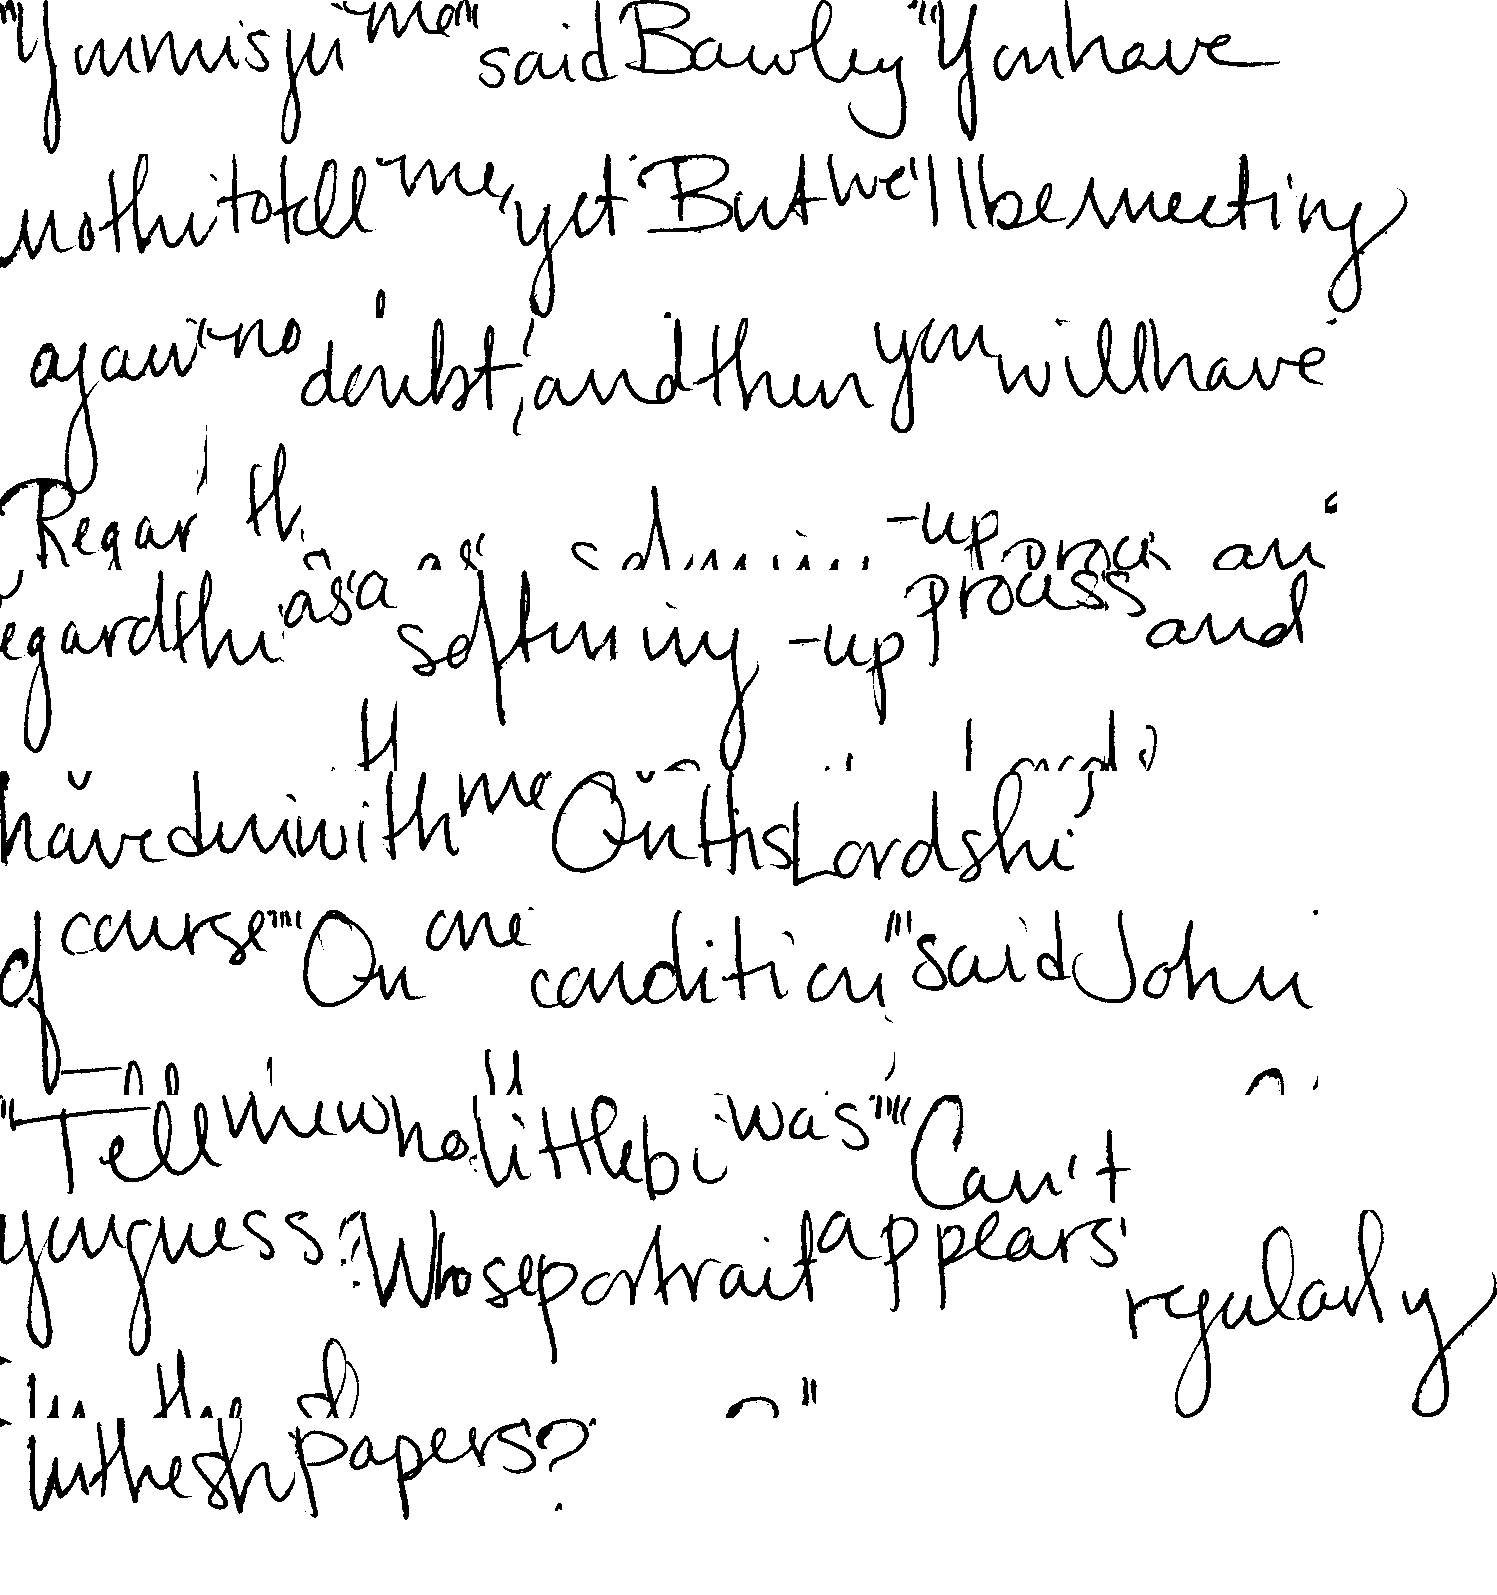 "You misju me" said Bawley "You have
nothi to tell me, yet But we'll be meeting
again no doubt, and then you will have
Regar th
egard thi as a softening -up process and
have dini with me On His Lordshi
of course" "On one condition" said John
"Tell me who little bi was" "Can't
you guess? Whose portrait appears regularly
in the sh papers?"